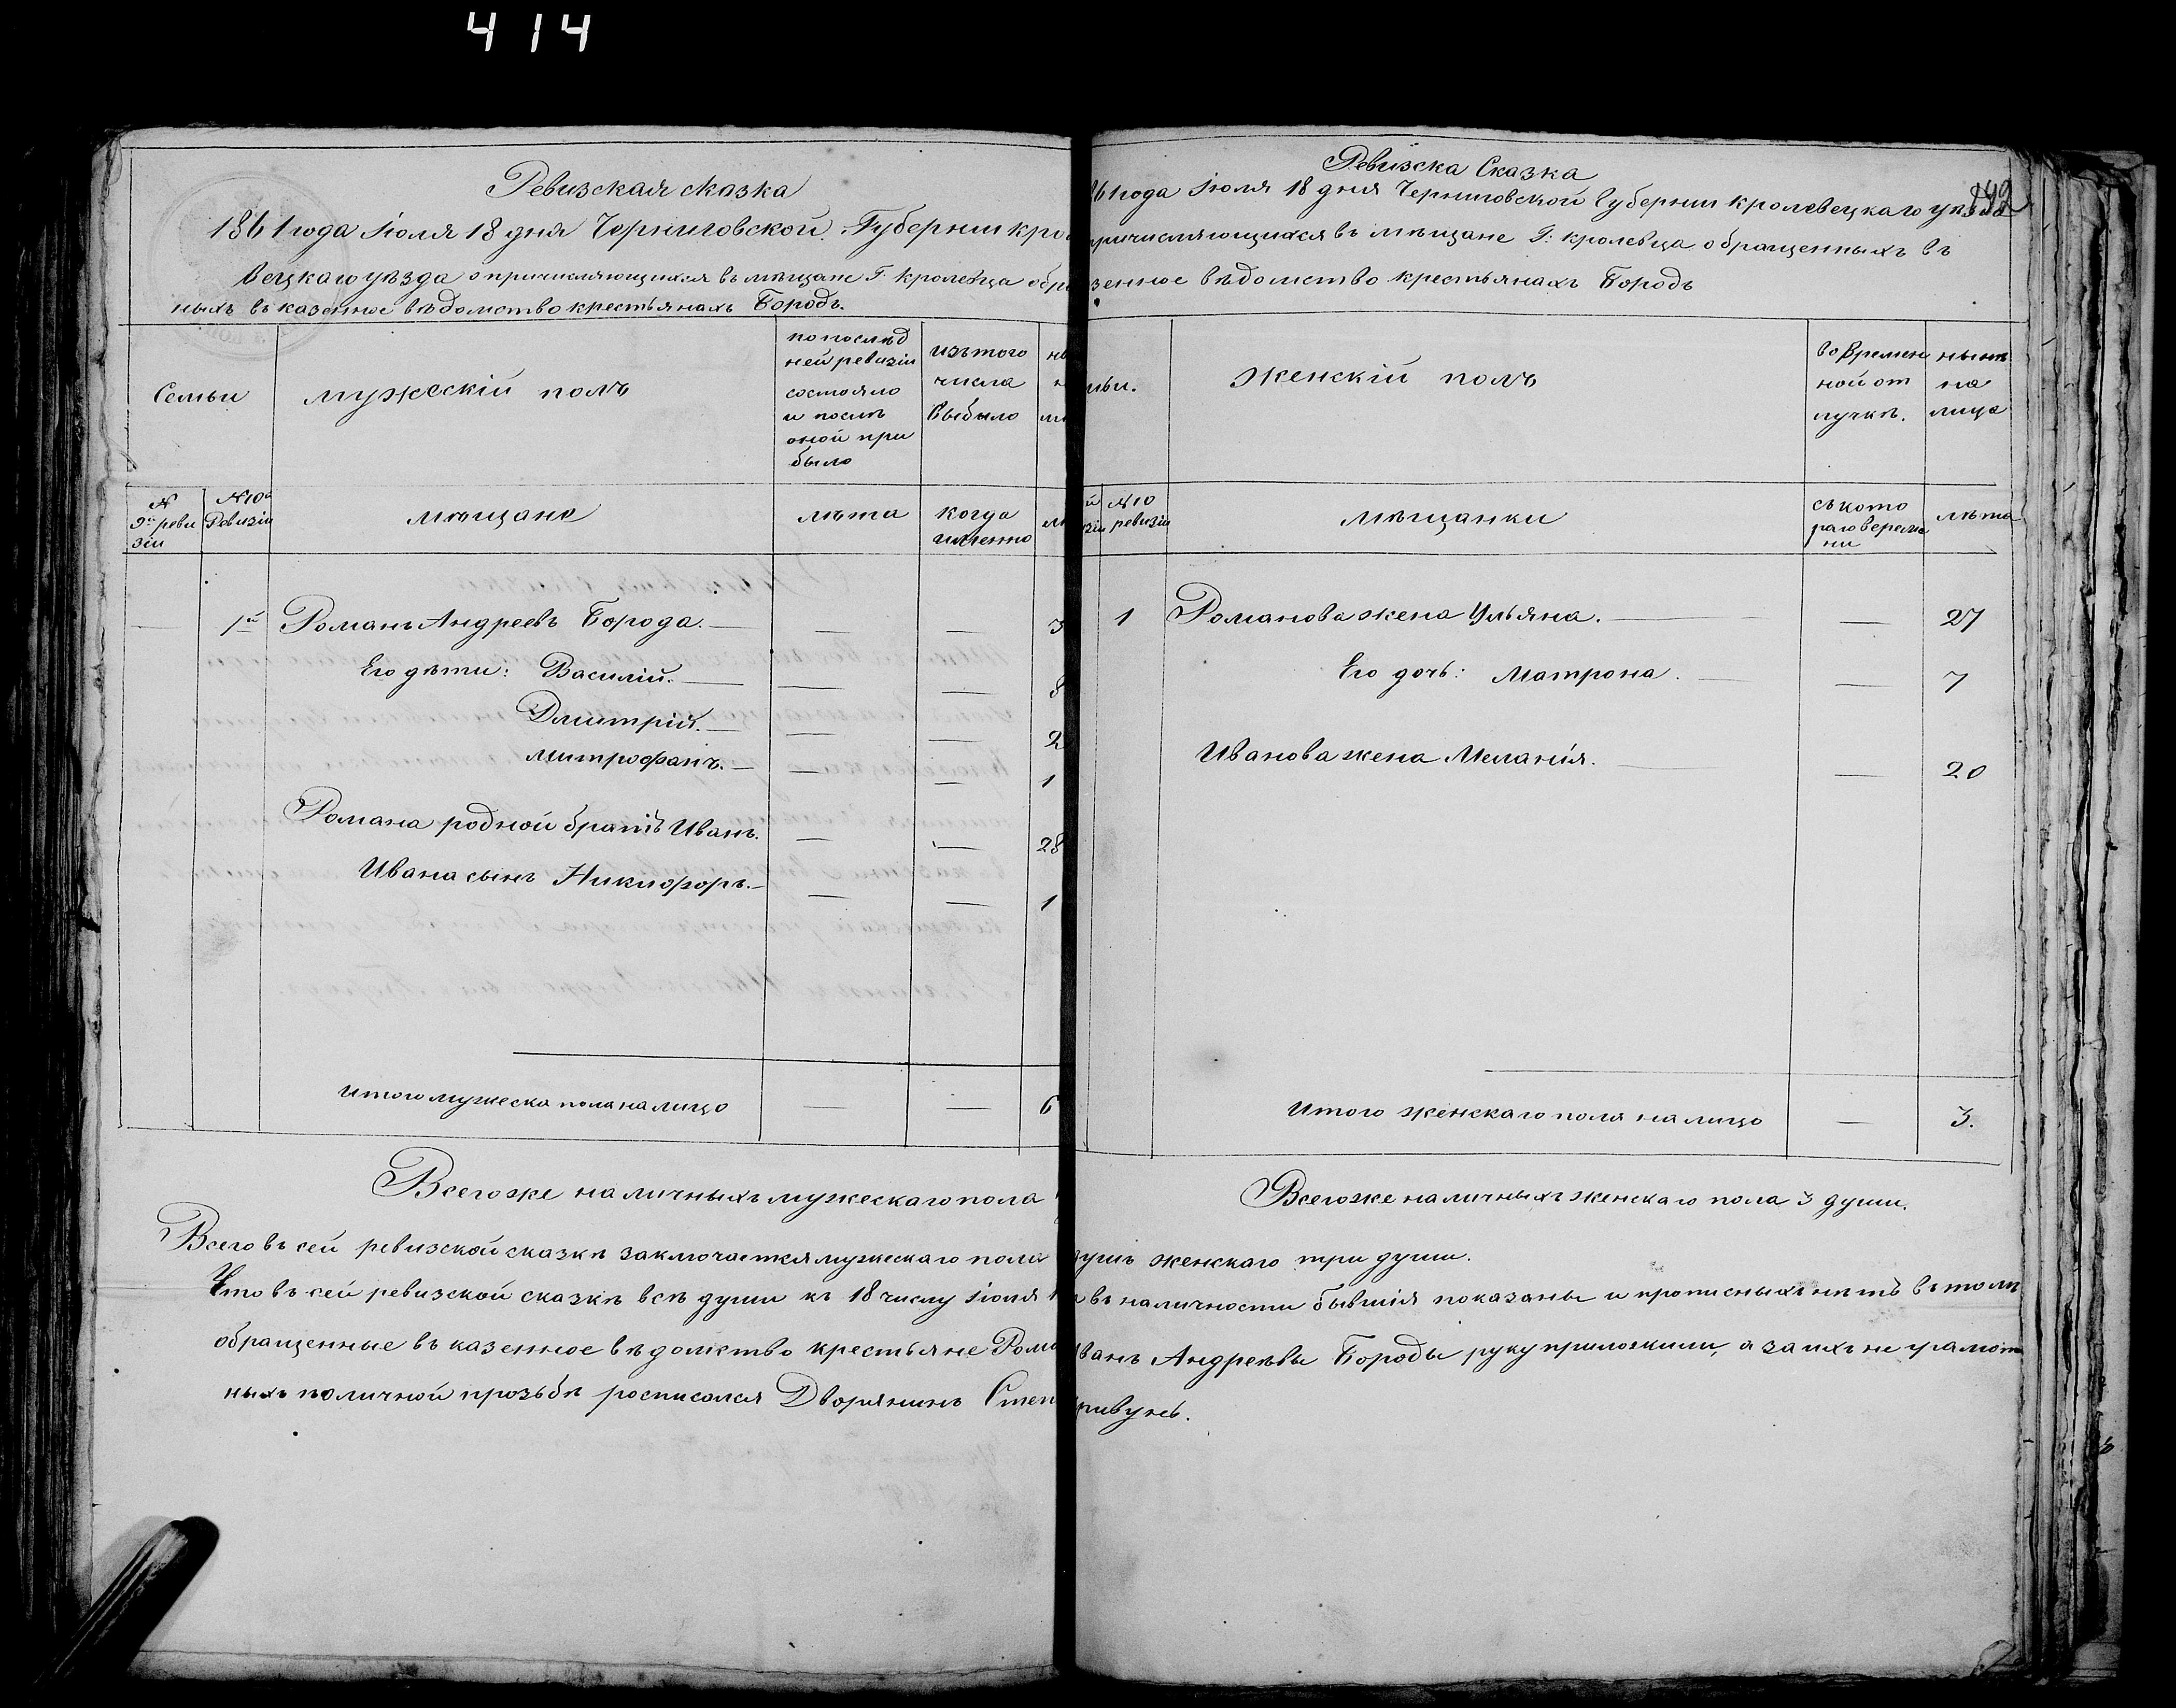 4 1 4
Ревизская сказка
1861 года Іюля 18 дня Черниговской Губерніи кро
вецкаго уѣзда о причисляющихся въ мѣщане Г. Кролевца обра
ныхъ въ казенное вѣдомство крестьянахъ Бородъ.
Семьи
мужескій полъ
по послѣд
ней ревизіи
состояло
и послѣ
оной при
было
изъ того
числа
выбыло
№
9й реви
зіи
№ 10й
Ревизіи
мѣщане
лѣта
когда
имѣнно
1й Романъ Андреевъ Борода. — — —
Его дѣти: Василій. — — — 8
Дмитрій. — — — 2
Митрофанъ. — — — 1
Романа родной братъ Иванъ. — — 28
Ивана сынъ Никифоръ. — — — 1
Итого мужеска пола на лицо — — 6
Всего же наличныхъ мужескаго пола
Всего въ сей ревизской сказкѣ заключается мужескаго пола
Что въ сей ревизской сказкѣ всѣ души къ 18 числу Іюля 1
обращенные въ казенное вѣдомство крестьяне Рома
ныхъ по личной прозьбѣ росписался Дворянинъ Степ
Ревизска Сказка
61 года Іюля 18 дня Черниговской Губерніи Кролевецкаго уѣзда
причисляющихся въ мѣщане Г: Кролевца обращенныхъ въ
зенное вѣдомство крестьянахъ Бородъ
мьи.
женскій полъ
во времен
ной от
лучкѣ.
нынѣ
на
лицо
й
зіи
№ 10
ревизіи
мѣщанки
съ кото
раго време
ни
лѣта
1 Романова жена Ульяна. — — 27
Его дочь: Матрона. — — 7
Иванова жена Меланія. — — 20
Итого женскаго пола на лицо — 3.
Всего же наличныхъ женскаго пола 3 души.
душъ женскаго три души.
въ наличности бывшія показаны и прописныхъ нѣтъ въ томъ
Иванъ Андреевы Бороды руку приложили, а за ихъ не грамот
ривунъ.